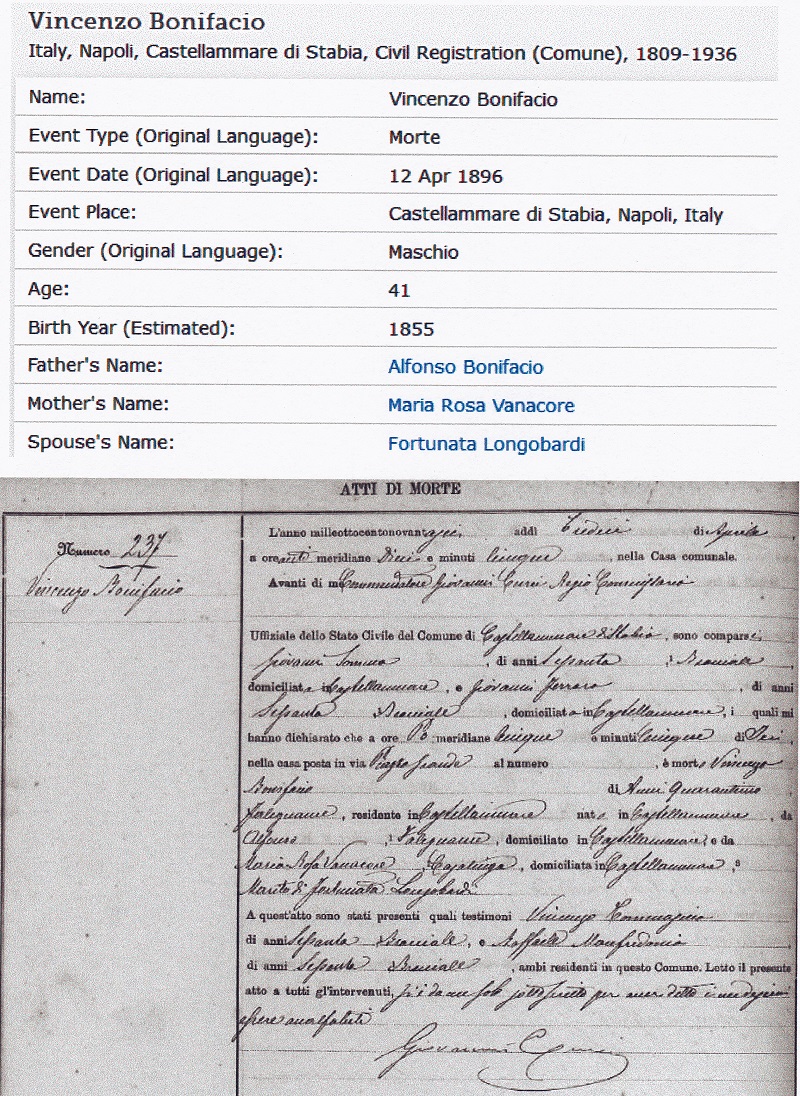 Vincenzo Bonifacio
Italy, Napoli, Castellammare di Stabia, Civil Registration (Comune), 1809-1936
Name: Vincenzo Bonifacio
Event Type (Original Language): Morte
Event Date (Original Language): 12 Apr 1896
Event Place: Castellammare di Stabia, Napoli, Italy
Gender (Original Language): Maschio
Age: 41
Birth Year (Estimated): 1855
Father's Name: Alfonso Bonifacio
Mother's Name: Maria Rosa Vanacore
Spouse's Name: Fortunata Longobardi
ATTI DI MORTE
Numero 237
Vincenzo Bonifacio
L'anno milleottocentonovantasei, addì tredici di Aprile
a ore anti meridiane dieci e minuti cinque, nella Casa comunale.
Avanti di me Commendatore Giovanni Regio Commissario
Uffiziale dello Stato Civile del Comune di Castellammare di Stabia, sono comparsi
Giovanni Somma, di anni sessanta, Bracciale,
domiciliato in Castellammare, e Giovanni Ferraro, di anni
sessanta Bracciale, domiciliato in Castellammare, i quali mi
hanno dichiarato che a ore Po meridiane cinque e minuti cinque di Ieri,
nella casa posta in via Piazza Grande al numero, è morto Vincenzo
Bonifacio di Anni Quarantuno
Falegname, residente in Castellammare nato in Castellammare, da
Alfonso, Falegname, domiciliato in Castellammare, e da
Maria Rosa Vanacore, Casalinga, domiciliata in Castellammare,
Marito di Fortunata Longobardi
A quest'atto sono stati presenti quali testimoni Vincenzo Tommasino
di anni sessanta Bracciale, e Raffaele Manfredonia
di anni sessanta Bracciale, ambi residenti in questo Comune. Letto il presente
atto a tutti gl'intervenuti, si è da me solo sottoscritto per aver detto i medesimi
essere analfabeti
Giovanni